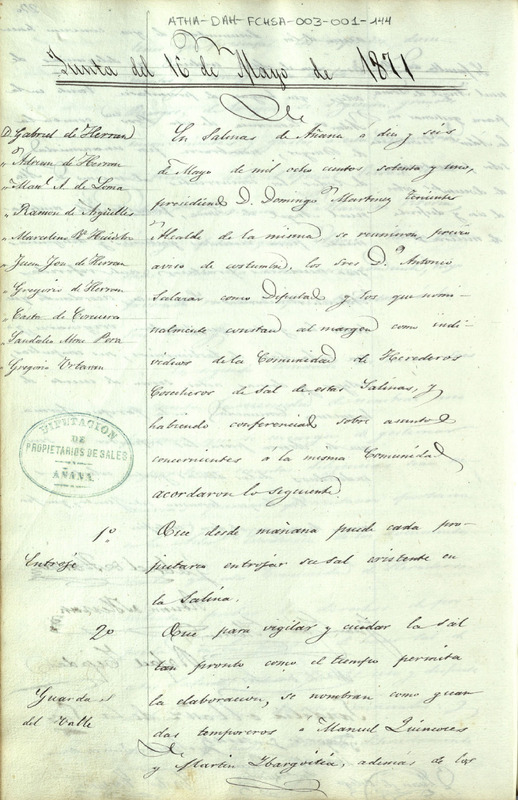 ATHA-DAH-FCHSA-003-001-144
Junta del 16 de Mayo de 1871
D. Gabriel de Herran
" Adrian de Herran
" Man.l A. de Loma
" Ramon de Argüelles
" Marcelino
" Juan José de Herran
" Gregorio de Herran
" Casto de Corcuera
Sandalio
Gregorio Urbavan
En Salinas de Añana a diez y seis
de Mayo de mil ocho cientos setenta y uno,
presidiendo D. Domingo Martinez Teniente
Alcalde de la misma se reunieron, previo
aviso de costumbre, los Sres D.n Antonio
Salazar como Diputado y los que nomi-
nalmente constan al margen como indi-
viduos de la Comunidad de Herederos
Cosecheros de Sal de estas Salinas, y
habiendo conferenciado sobre asuntos
concernientes á la misma Comunidad
acordaron lo siguiente.
DIPUTACION
DE
PROPIETARIOS DE SALES
AÑANA
1º
Entroje
Que desde mañana puede cada pro-
pietario entrojar su sal existente en
la Salina.
2º
Guardas
del Valle
Que para vigilar y cuidar la sal
tan pronto como el tiempo permita
la elaboracion, se nombran como guar-
das temporeros a Manuel Quincoces
y Martin Ibargoitia, además de los